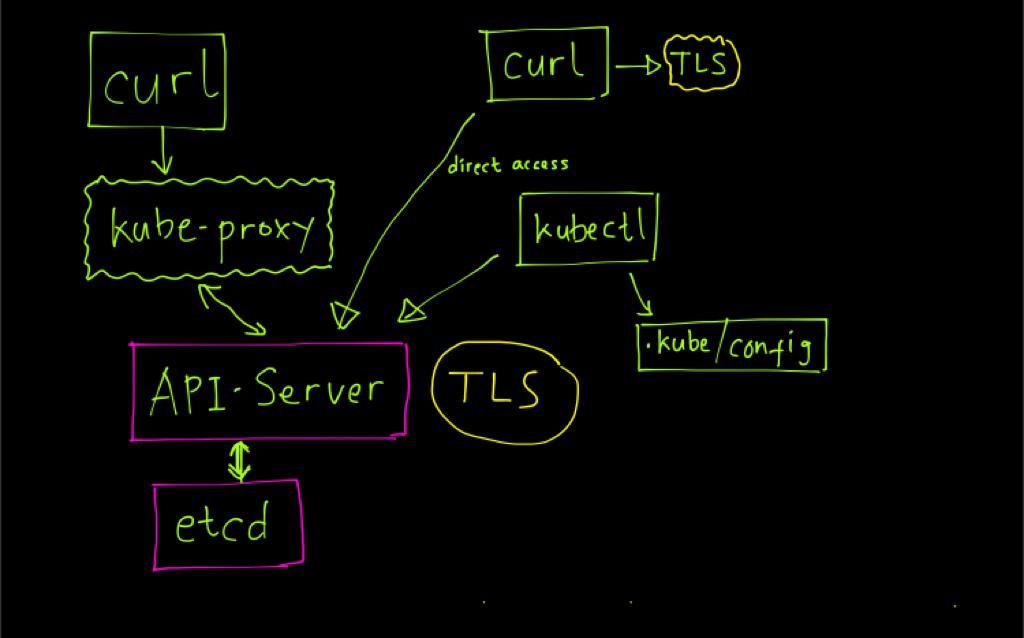 curl
curl
TLS
direct access
kube-proxy
kubectl
.kube/config
API-Server
TLS
etcd